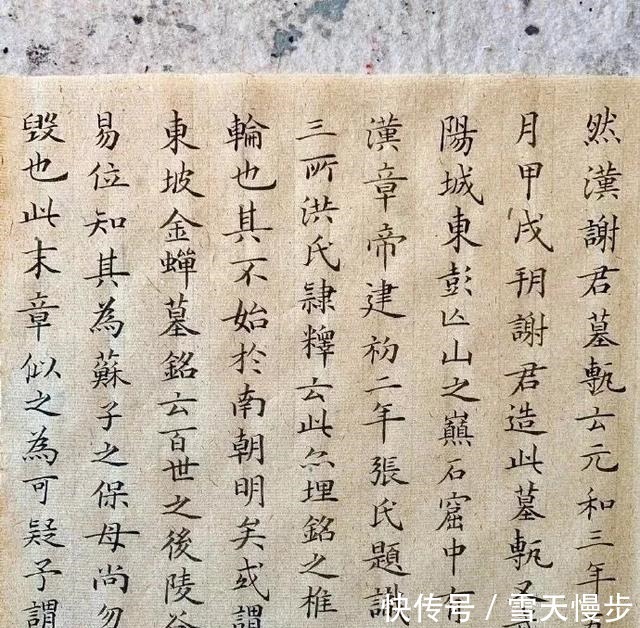 然漢謝君墓甎云元和三年五
月甲戌朔謝君造此墓甎
陽城東彭亾山之巔石窟中有
漢章帝建初二年張氏題識
三所洪氏隷釋云此亦埋銘之椎
輪也其不始於南朝明矣或謂
東坡金蟬墓銘云百世之後陵谷
易位知其為蘇子之保母尚勿
毀也此末章似之為可疑予謂
快传号 / 雪天慢步